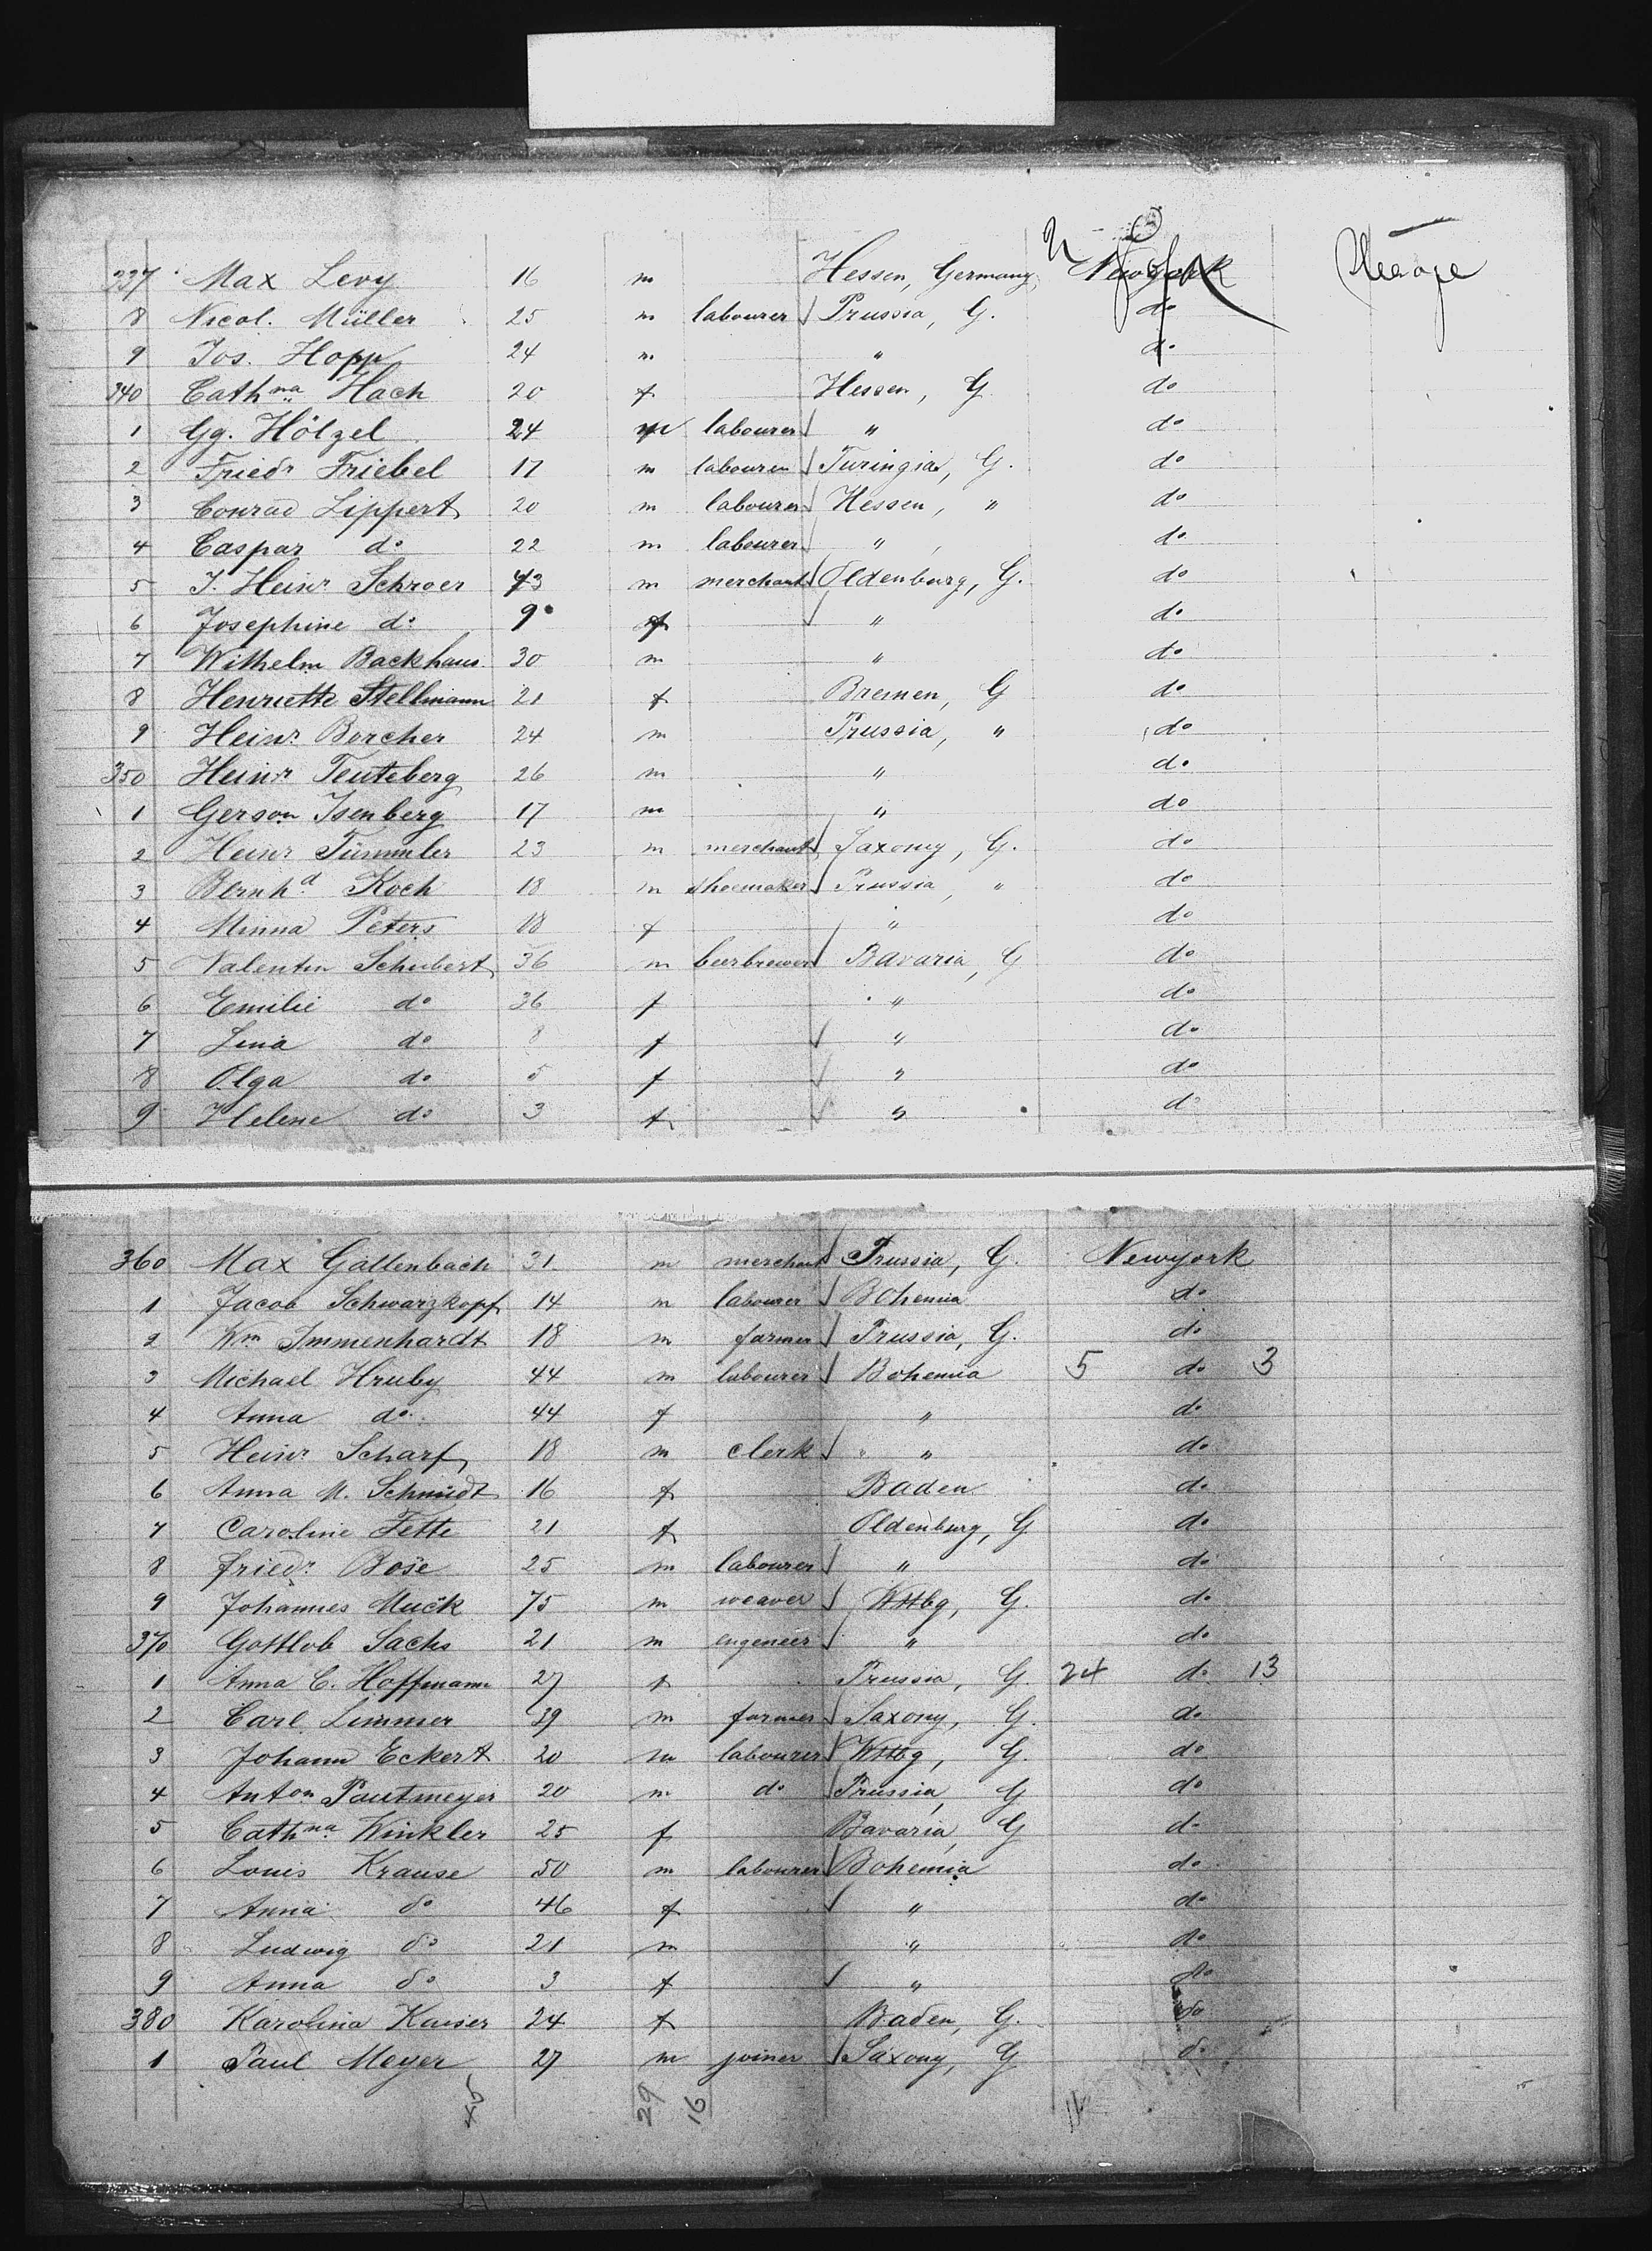 337 Max Levy 16 m Hessen, Germany Newyork Steerage
8 Nicol. Müller 25 m labourer Prussia, G. do
9 Jos. Hopp 24 m " do
340 Cathna Hach 20 f Hessen, G do
1 Gg. Hölzel 24 m labourer " do
2 Friedr Friebel 17 m labourer Turingia, G. do
3 Conrad Lippert 20 m labourer Hessen, " do
4 Caspar do 22 m labourer " do
5 J. Heinr Schroer 43 m merchant Oldenburg, G. do
6 Josephine do 9 f " do
7 Wilhelm Backhaus 30 m " do
8 Henriette Stellmann 21 f Bremen, G do
9 Heinr Borcher 24 m Prussia, " do
350 Heinr Teuteberg 26 m " do
1 Gerson Isenberg 17 m " do
2 Heinr Tümmler 23 m merchant Saxony, G. do
3 Bernhd Koch 18 m shoemaker Prussia, " do
4 Minna Peters 18 f " do
5 Valentin Schubert 36 m beerbrewer Bavaria, G do
6 Emilie do 36 f " do
7 Lina do 8 f " do
8 Olga do 5 f " do
9 Helene do 3 f " do
360 Max Gallenbach 31 m merchant Prussia, G. Newyork
1 Jacob Schwarzkopf 14 m labourer Bohemia do
2 Wm Immenhardt 18 m farmer Prussia, G. do
3 Michael Hruby 44 m labourer Bohemia 5 do 3
4 Anna do 44 f " do
5 Heinr Scharf 18 m clerk " " do
6 Anna M. Schmidt 16 f Baden do
7 Caroline Fette 21 f Oldenburg, G do
8 Friedr Bose 25 m labourer " do
9 Johannes Muck 75 m weaver Wttbg, G. do
370 Gottlob Sachs 21 m engeneer " do
1 Anna C. Hoffmann 27 f Prussia, G. 24 do 13
2 Carl Limmer 39 m farmer Saxony, G. do
3 Johann Eckert 20 m labourer Wttbg, G. do
4 Anton Pautmeyer 20 m do Prussia, G do
5 Cathna Winkler 25 f Bavaria, G do
6 Louis Krause 50 m labourer Bohemia do
7 Anna do 46 f " do
8 Ludwig do 21 m " do
9 Anna do 3 f " do
380 Karolina Kaiser 24 f Baden, G. do
1 Paul Meyer 27 m joiner Saxony, G do
45 29 16